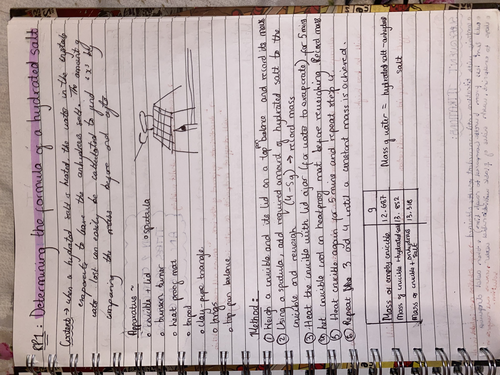 PP1: Determining the formula of a hydrated salt
Context → when hydrated salt is heated, the water in the crystals
evaporates to leave the anhydrous salt. The amount of
water lost can easily be calculated to find 'x', by
comparing the masses before and after
Apparatus ~
• crucible + lid
• spatula
• bunsen burner
• heat proof mat
• tripod
• clay pipe triangle
• tongs
• top pan balance
Method:
① Weigh a crucible and its lid on a top pan balance and record its mass
② Using a spatula, add required amount of hydrated salt to the
crucible and reweigh (4-5g) → record mass
③ Heat the crucible with lid ajar (for water to evaporate) for 5 mins
④ let crucible cool on heatproof mat before reweighing. Record mass.
⑤ Heat crucible again for 5 mins and repeat step 4
⑥ Repeat step 3 and 4 until a constant mass is achieved.
g
Mass of empty crucible 12.667
Mass of crucible + hydrated salt
Mass of crucible + anhydrous salt
Mass of water = hydrated salt - anhydrous
salt